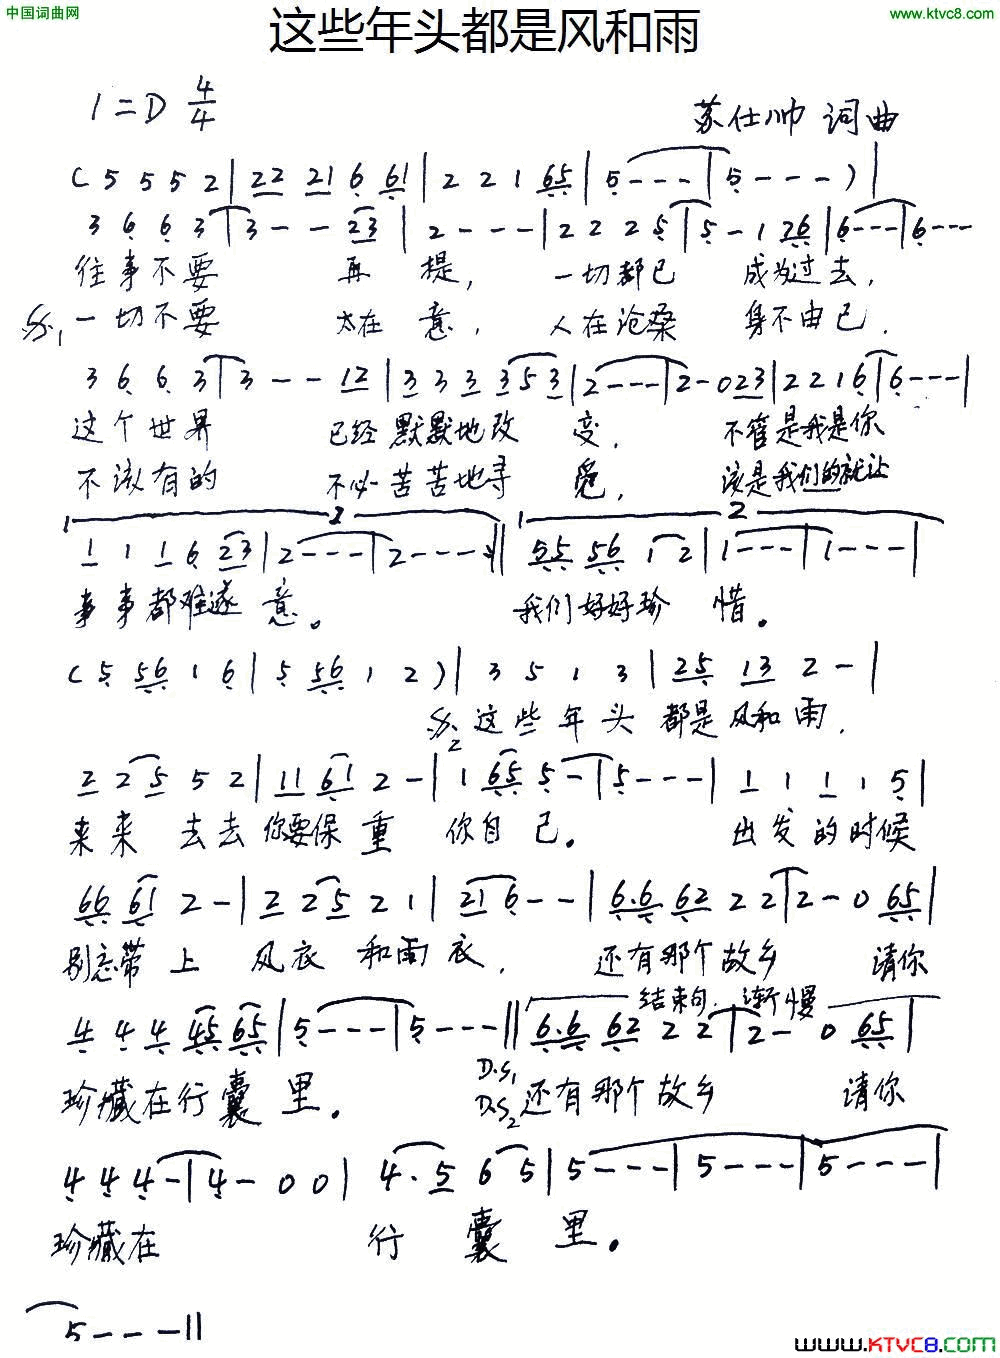 中国词曲网
www.ktvc8.com
这些年头都是风和雨
1=D 4/4
苏仕帅 词曲
( 5 5 5 2 | 22 21 6 61 | 2 2 1 65 | 5 - - - | 5 - - - ) |
3 6 6 3 | 3 - - 23 | 2 - - - | 2 2 2 5 | 5 - 1 26 | 6 - - - | 6 - - -
往事不要 再 提, 一切都已 成为过去,
𝄋1 一切不要 太在 意, 人在沧桑 身不由己.
3 6 6 3 | 3 - - 12 | 3 3 3 3 5 3 | 2 - - - | 2 - 0 23 | 2 2 1 6 | 6 - - - |
这个世界 已经默默地改 变, 不管是我是你
不该有的 不必苦苦地寻 觅, 该是我们的就让
1 2
1 1 1 6 23 | 2 - - - | 2 - - - :|| 55 56 1 2 | 1 - - - | 1 - - - |
事事都难遂 意。 我们好好珍 惜。
( 5 56 1 6 | 5 56 1 2 ) | 3 5 1 3 | 25 13 2 - |
𝄋2 这些年头 都是风和雨,
2 2 5 5 2 | 11 61 2 - | 1 65 5 - | 5 - - - | 1 1 1 1 5 |
来来 去去你要保重 你自己。 出发的时候
66 61 2 - | 2 2 5 2 1 | 21 6 - - | 6.6 62 2 2 | 2 - 0 65 |
别忘带 上 风衣 和雨衣, 还有那个故乡 请你
结束句.渐慢
4 4 4 45 65 | 5 - - - | 5 - - - || 6.6 62 2 2 | 2 - 0 65 |
D.S1
珍藏在行囊 里。 D.S2 还有那个故乡 请你
4 4 4 - | 4 - 0 0 | 4. 5 6 5 | 5 - - - | 5 - - - | 5 - - - |
珍藏在 行 囊 里。
5 - - - ||
www.KTVC8.com